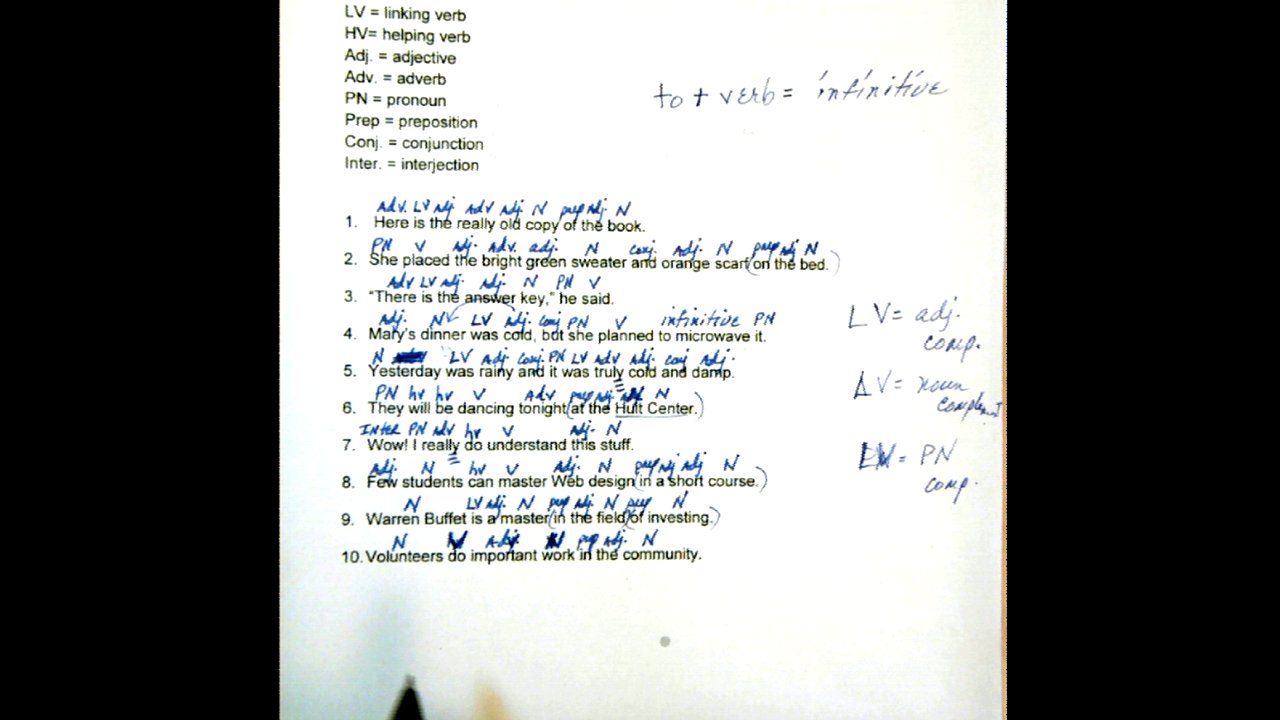 LV = linking verb
HV= helping verb
Adj. = adjective
Adv. = adverb
PN = pronoun
to + verb = infinitive
Prep = preposition
Conj. = conjunction
Inter. = interjection
Adv. LV Adj Adv Adj. N prep Adj. N
1. Here is the really old copy of the book.
PN V Adj. Adv. adj. N conj. Adj. N prep Adj N
2. She placed the bright green sweater and orange scarf (on the bed.)
Adv LV Adj. Adj. N PN V
3. "There is the answer key," he said.
Adj. N LV Adj. conj PN V infinitive PN
LV= adj. comp.
4. Mary's dinner was cold, but she planned to microwave it.
N LV Adj. conj. PN LV Adv Adj. conj Adj.
5. Yesterday was rainy and it was truly cold and damp.
LV= noun complement
PN hv hv V Adv prep Adj. N
6. They will be dancing tonight (at the Hult Center.)
INTER PN Adv hv V Adj. N
7. Wow! I really do understand this stuff.
LV= PN comp.
Adj. N hv V Adj. N prep Adj Adj N
8. Few students can master Web design (in a short course.)
N LV Adj. N prep Adj N prep N
9. Warren Buffet is a master (in the field) (of investing.)
N V Adj N prep Adj. N
10. Volunteers do important work in the community.